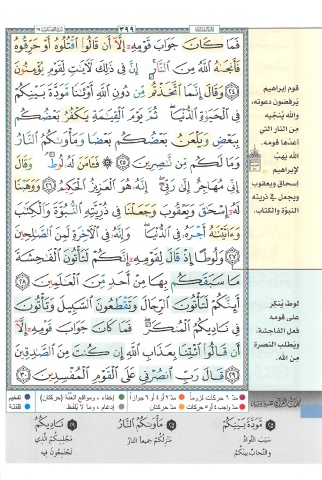 ٣٩٩
فَمَا كَانَ جَوَابَ قَوْمِهِۦٓ إِلَّآ أَن قَالُوا۟ ٱقْتُلُوهُ أَوْ حَرِّقُوهُ
فَأَنجَىٰهُ ٱللَّهُ مِنَ ٱلنَّارِ ۚ إِنَّ فِى ذَٰلِكَ لَـَٔايَـٰتٍ لِّقَوْمٍ يُؤْمِنُونَ
﴿٢٤﴾ وَقَالَ إِنَّمَا ٱتَّخَذْتُم مِّن دُونِ ٱللَّهِ أَوْثَـٰنًا مَّوَدَّةَ بَيْنِكُمْ
فِى ٱلْحَيَوٰةِ ٱلدُّنْيَا ۖ ثُمَّ يَوْمَ ٱلْقِيَـٰمَةِ يَكْفُرُ بَعْضُكُم
بِبَعْضٍ وَيَلْعَنُ بَعْضُكُم بَعْضًا وَمَأْوَىٰكُمُ ٱلنَّارُ
وَمَا لَكُم مِّن نَّـٰصِرِينَ ﴿٢٥﴾ ۞ فَـَٔامَنَ لَهُۥ لُوطٌ ۘ وَقَالَ
إِنِّى مُهَاجِرٌ إِلَىٰ رَبِّىٓ ۖ إِنَّهُۥ هُوَ ٱلْعَزِيزُ ٱلْحَكِيمُ ﴿٢٦﴾ وَوَهَبْنَا
لَهُۥٓ إِسْحَـٰقَ وَيَعْقُوبَ وَجَعَلْنَا فِى ذُرِّيَّتِهِ ٱلنُّبُوَّةَ وَٱلْكِتَـٰبَ
وَءَاتَيْنَـٰهُ أَجْرَهُۥ فِى ٱلدُّنْيَا ۖ وَإِنَّهُۥ فِى ٱلْـَٔاخِرَةِ لَمِنَ ٱلصَّـٰلِحِينَ
﴿٢٧﴾ وَلُوطًا إِذْ قَالَ لِقَوْمِهِۦٓ إِنَّكُمْ لَتَأْتُونَ ٱلْفَـٰحِشَةَ
مَا سَبَقَكُم بِهَا مِنْ أَحَدٍ مِّنَ ٱلْعَـٰلَمِينَ ﴿٢٨﴾
أَئِنَّكُمْ لَتَأْتُونَ ٱلرِّجَالَ وَتَقْطَعُونَ ٱلسَّبِيلَ وَتَأْتُونَ
فِى نَادِيكُمُ ٱلْمُنكَرَ ۖ فَمَا كَانَ جَوَابَ قَوْمِهِۦٓ إِلَّآ
أَن قَالُوا۟ ٱئْتِنَا بِعَذَابِ ٱللَّهِ إِن كُنتَ مِنَ ٱلصَّـٰدِقِينَ
﴿٢٩﴾ قَالَ رَبِّ ٱنصُرْنِى عَلَى ٱلْقَوْمِ ٱلْمُفْسِدِينَ ﴿٣٠﴾
قوم إبراهيم
يرفضون دعوته،
والله يُنجّيه
من النار التي
أعدّها قومه.
الله يَهَبُ
لإبراهيم
إسحاق ويعقوب
ويجعل في ذريته
النبوّة والكتاب.
لوط يُنكر
على قومه
فعل الفاحشة،
ويطلب النصرة
من الله.
مدّ ٦ حركات لزوماً مدّ ٢ أو ٤ أو ٦ جوازاً إخفاء، ومواقع الغُنّة (حركتان) تفخيم
مدّ واجب ٤ أو ٥ حركات مدّ حركتان إدغام، وما لا يُلفَظ قلقلة
٢٥ مَوَدَّةَ بَيْنِكُمْ
سبب التوادّ
والتحاب بينكم
٢٥ مَأْوَاكُمُ النَّارُ
منزلكم جميعاً النار
٢٩ نَادِيكُمُ
مجلسكم الذي
تجتمعون فيه